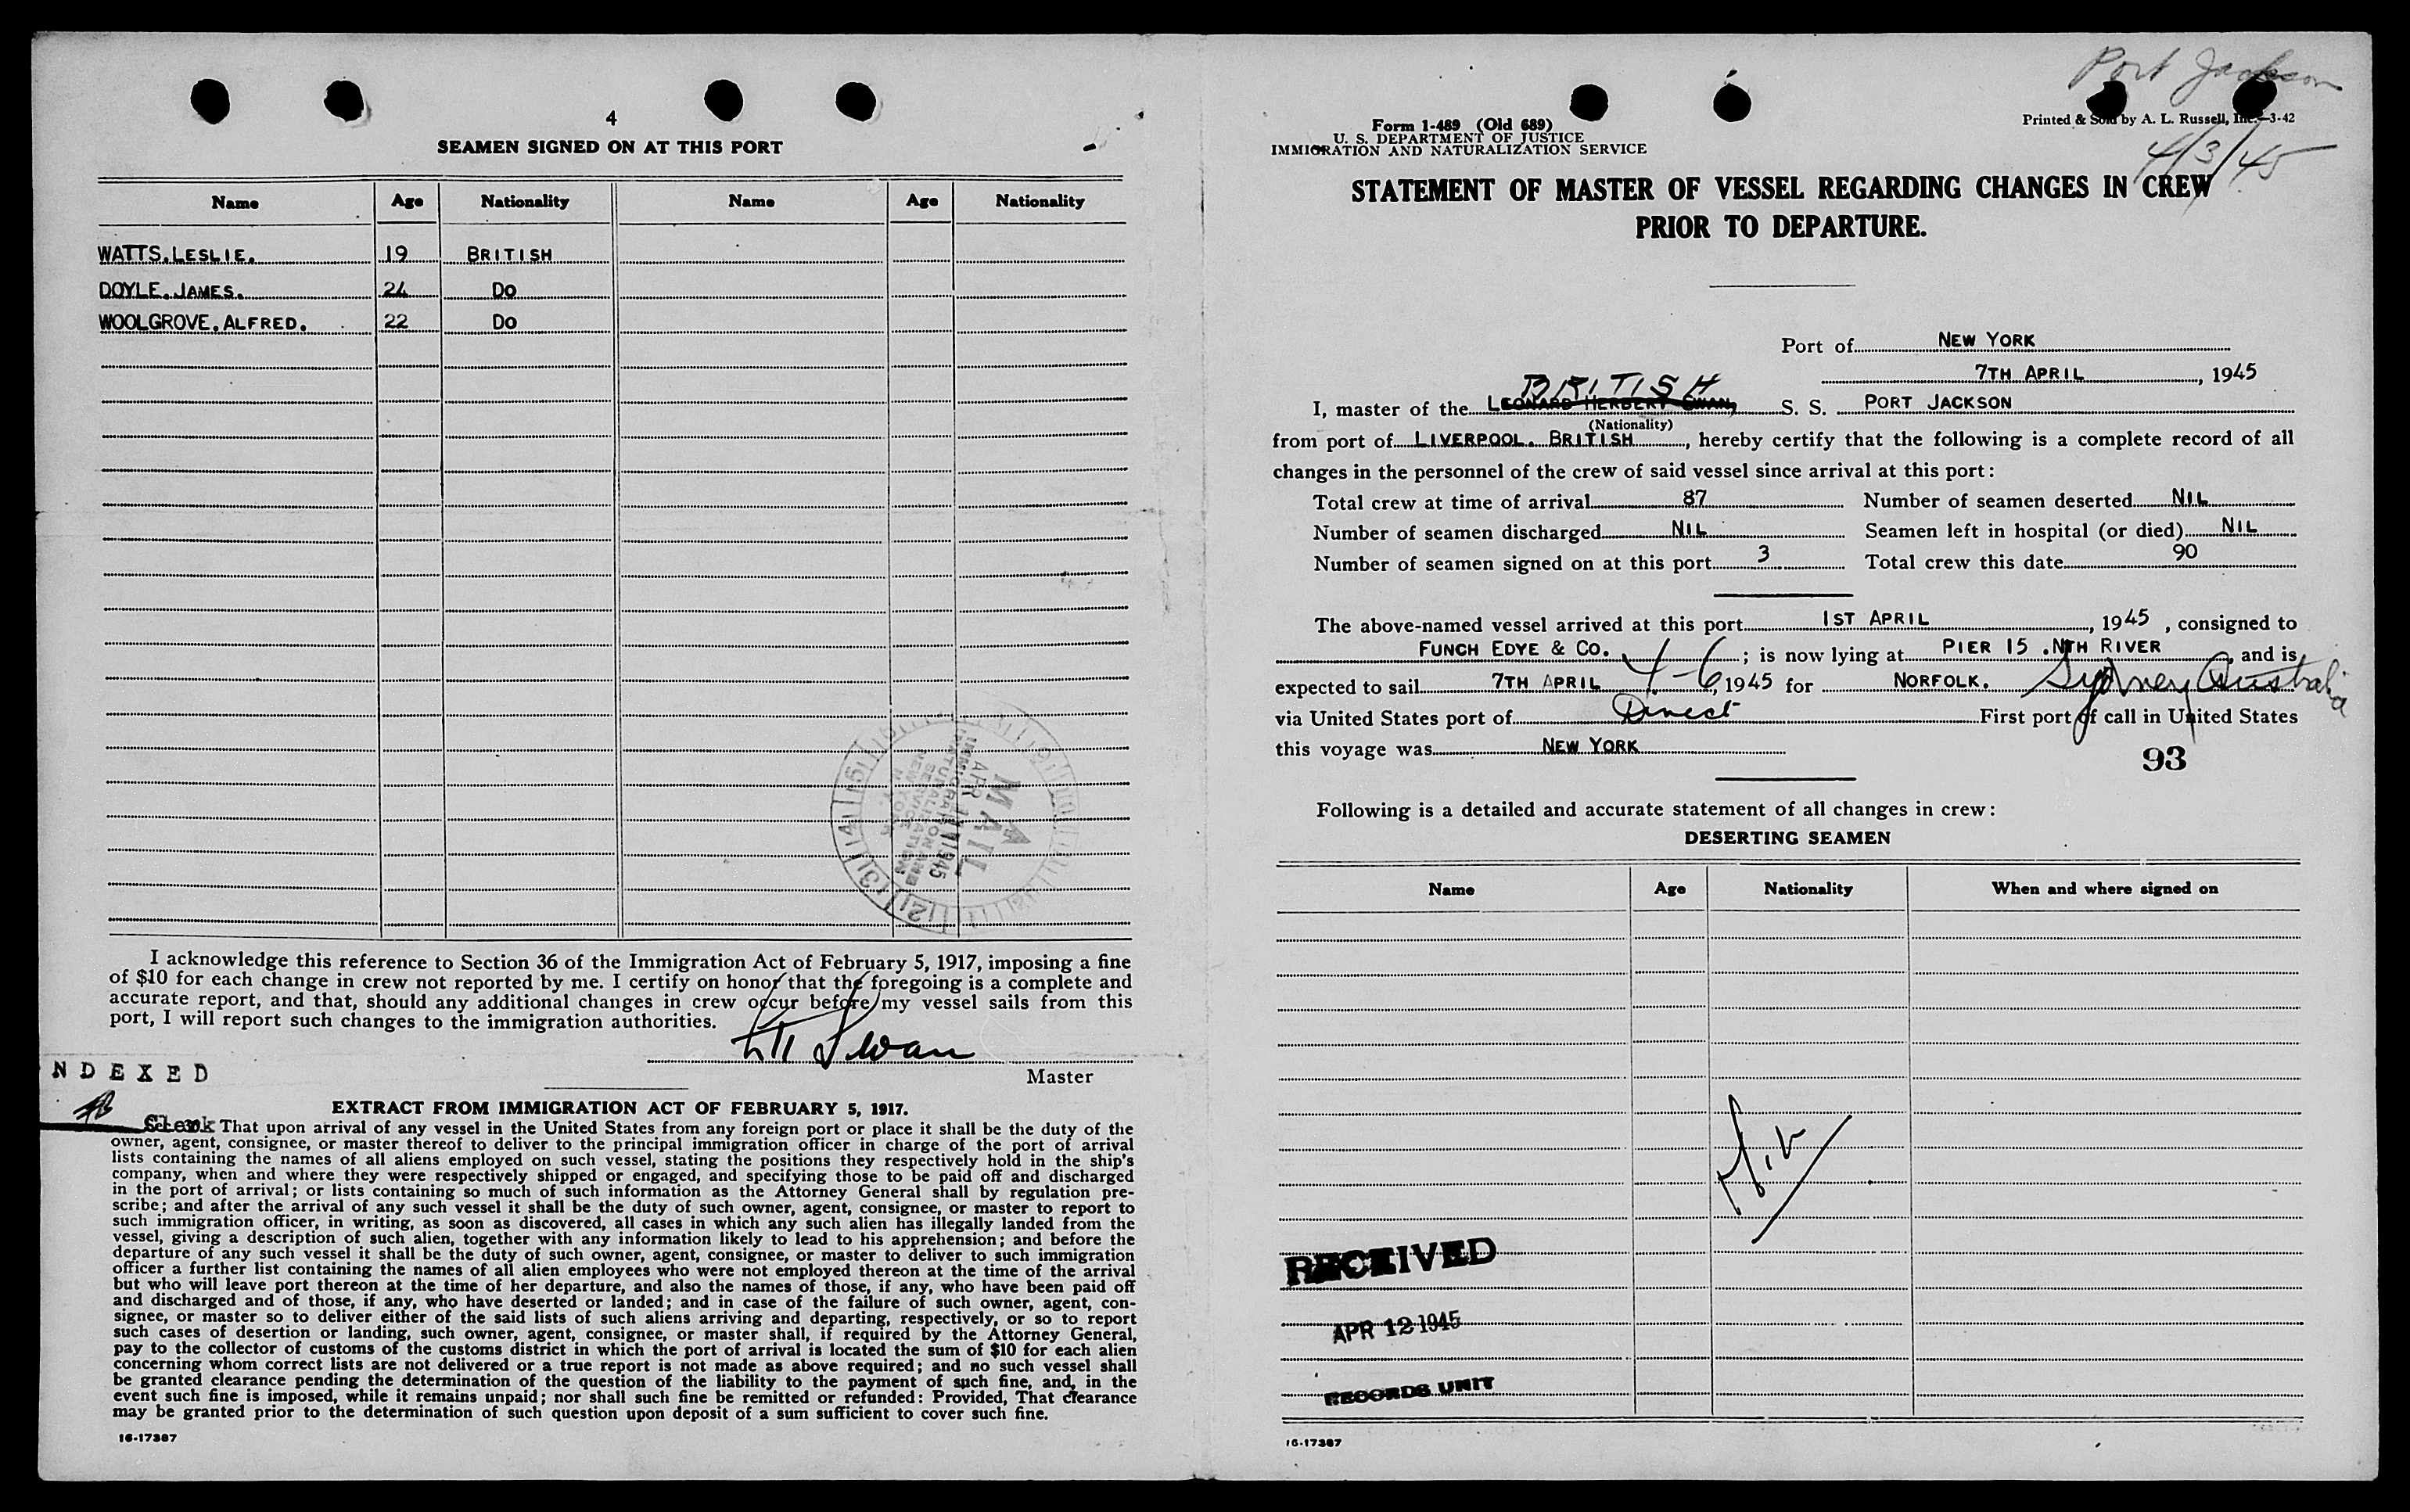 4
SEAMEN SIGNED ON AT THIS PORT
Name Age Nationality Name Age Nationality
WATTS, LESLIE. 19 BRITISH
DOYLE, JAMES. 24 DO
WOOLGROVE, ALFRED. 22 DO
MAIL
APR 11 1945
IMMIGRATION AND
NATURALIZATION
SERVICE
NEW YORK
N. Y.
I acknowledge this reference to Section 36 of the Immigration Act of February 5, 1917, imposing a fine
of $10 for each change in crew not reported by me. I certify on honor that the foregoing is a complete and
accurate report, and that, should any additional changes in crew occur before my vessel sails from this
port, I will report such changes to the immigration authorities.
LH Swan
Master
NDEXED
Clerk
EXTRACT FROM IMMIGRATION ACT OF FEBRUARY 5, 1917.
That upon arrival of any vessel in the United States from any foreign port or place it shall be the duty of the
owner, agent, consignee, or master thereof to deliver to the principal immigration officer in charge of the port of arrival
lists containing the names of all aliens employed on such vessel, stating the positions they respectively hold in the ship's
company, when and where they were respectively shipped or engaged, and specifying those to be paid off and discharged
in the port of arrival; or lists containing so much of such information as the Attorney General shall by regulation pre-
scribe; and after the arrival of any such vessel it shall be the duty of such owner, agent, consignee, or master to report to
such immigration officer, in writing, as soon as discovered, all cases in which any such alien has illegally landed from the
vessel, giving a description of such alien, together with any information likely to lead to his apprehension; and before the
departure of any such vessel it shall be the duty of such owner, agent, consignee, or master to deliver to such immigration
officer a further list containing the names of all alien employees who were not employed thereon at the time of the arrival
but who will leave port thereon at the time of her departure, and also the names of those, if any, who have been paid off
and discharged and of those, if any, who have deserted or landed; and in case of the failure of such owner, agent, con-
signee, or master so to deliver either of the said lists of such aliens arriving and departing, respectively, or so to report
such cases of desertion or landing, such owner, agent, consignee, or master shall, if required by the Attorney General,
pay to the collector of customs of the customs district in which the port of arrival is located the sum of $10 for each alien
concerning whom correct lists are not delivered or a true report is not made as above required; and no such vessel shall
be granted clearance pending the determination of the question of the liability to the payment of such fine, and, in the
event such fine is imposed, while it remains unpaid; nor shall such fine be remitted or refunded: Provided, That clearance
may be granted prior to the determination of such question upon deposit of a sum sufficient to cover such fine.
16-17387
Port Jackson
4/3/45
Form 1-489 (Old 689)
U. S. DEPARTMENT OF JUSTICE
IMMIGRATION AND NATURALIZATION SERVICE
Printed & Sold by A. L. Russell, Inc.—3-42
STATEMENT OF MASTER OF VESSEL REGARDING CHANGES IN CREW
PRIOR TO DEPARTURE.
Port of NEW YORK
7TH APRIL, 1945
BRITISH
I, master of the LEONARD HERBERT SWAN, S. S. PORT JACKSON
(Nationality)
from port of LIVERPOOL. BRITISH, hereby certify that the following is a complete record of all
changes in the personnel of the crew of said vessel since arrival at this port:
Total crew at time of arrival 87 Number of seamen deserted NIL
Number of seamen discharged NIL Seamen left in hospital (or died) NIL
Number of seamen signed on at this port 3 Total crew this date 90
The above-named vessel arrived at this port 1ST APRIL, 1945, consigned to
FUNCH EDYE & CO. ; is now lying at PIER 15. NTH RIVER, and is
expected to sail 7TH APRIL 4-6, 1945 for NORFOLK. Sydney Australia
via United States port of Direct First port of call in United States
this voyage was NEW YORK
93
Following is a detailed and accurate statement of all changes in crew:
DESERTING SEAMEN
Name Age Nationality When and where signed on
Nil
RECEIVED
APR 12 1945
RECORDS UNIT
16-17387